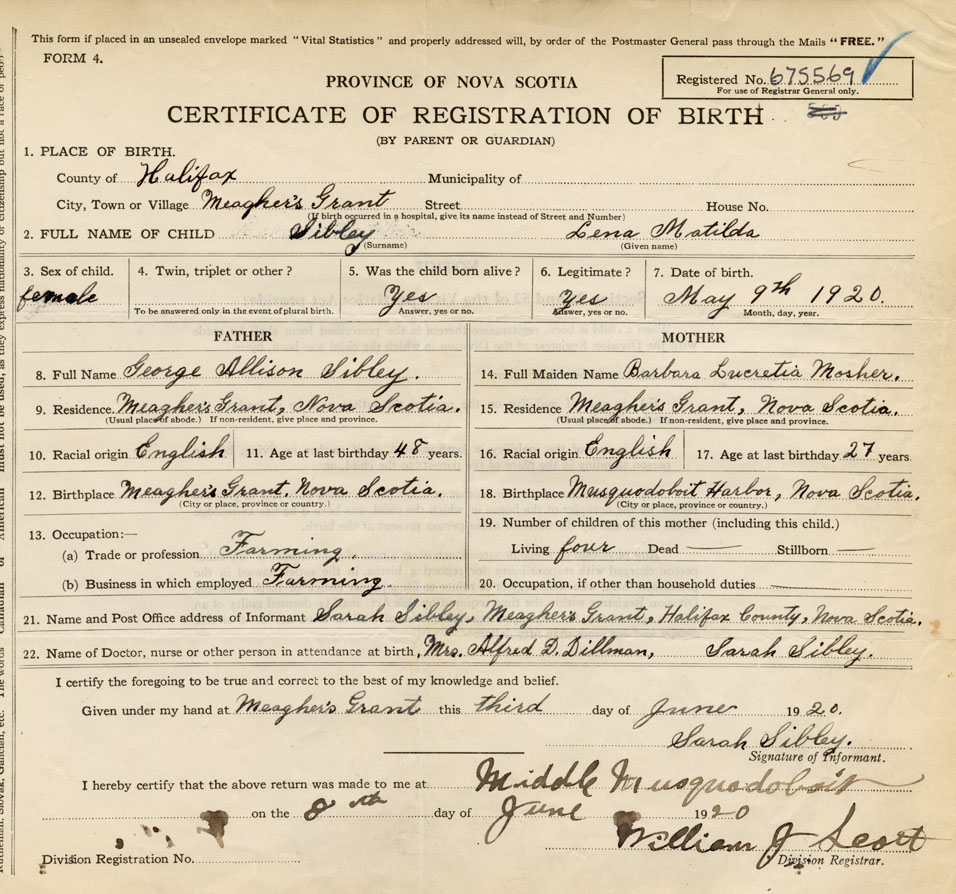 This form if placed in an unsealed envelope marked "Vital Statistics" and properly addressed will, by order of the Postmaster General pass through the Mails "FREE."
FORM 4.
Registered No. 675569
For use of Registrar General only.
PROVINCE OF NOVA SCOTIA
CERTIFICATE OF REGISTRATION OF BIRTH
(BY PARENT OR GUARDIAN)
1. PLACE OF BIRTH.
County of Halifax Municipality of
City, Town or Village Meagher's Grant Street House No.
(If birth occurred in a hospital, give its name instead of Street and Number)
2. FULL NAME OF CHILD Sibley Lena Matilda
(Surname) (Given name)
3. Sex of child. 4. Twin, triplet or other? 5. Was the child born alive? 6. Legitimate? 7. Date of birth.
female Yes Yes May 9th 1920.
To be answered only in the event of plural birth. Answer, yes or no. Answer, yes or no. Month, day, year.
FATHER MOTHER
8. Full Name George Allison Sibley. 14. Full Maiden Name Barbara Lucretia Mosher.
9. Residence. Meagher's Grant, Nova Scotia. 15. Residence Meagher's Grant, Nova Scotia.
(Usual place of abode.) If non-resident, give place and province. (Usual place of abode.) If non-resident, give place and province.
10. Racial origin English 11. Age at last birthday 48 years. 16. Racial origin English 17. Age at last birthday 27 years.
12. Birthplace Meagher's Grant. Nova Scotia. 18. Birthplace Musquodoboit Harbor, Nova Scotia.
(City or place, province or country.) (City or place, province or country.)
13. Occupation:— 19. Number of children of this mother (including this child.)
(a) Trade or profession Farming. Living four Dead — Stillborn —
(b) Business in which employed Farming. 20. Occupation, if other than household duties —
21. Name and Post Office address of Informant Sarah Sibley, Meagher's Grant, Halifax County, Nova Scotia.
22. Name of Doctor, nurse or other person in attendance at birth, Mrs. Alfred D. Dillman, Sarah Sibley.
I certify the foregoing to be true and correct to the best of my knowledge and belief.
Given under my hand at Meagher's Grant this third day of June 1920.
Sarah Sibley.
Signature of Informant.
I hereby certify that the above return was made to me at Middle Musquodoboit
on the 8th day of June 1920
William J Scott
Division Registration No. Division Registrar.